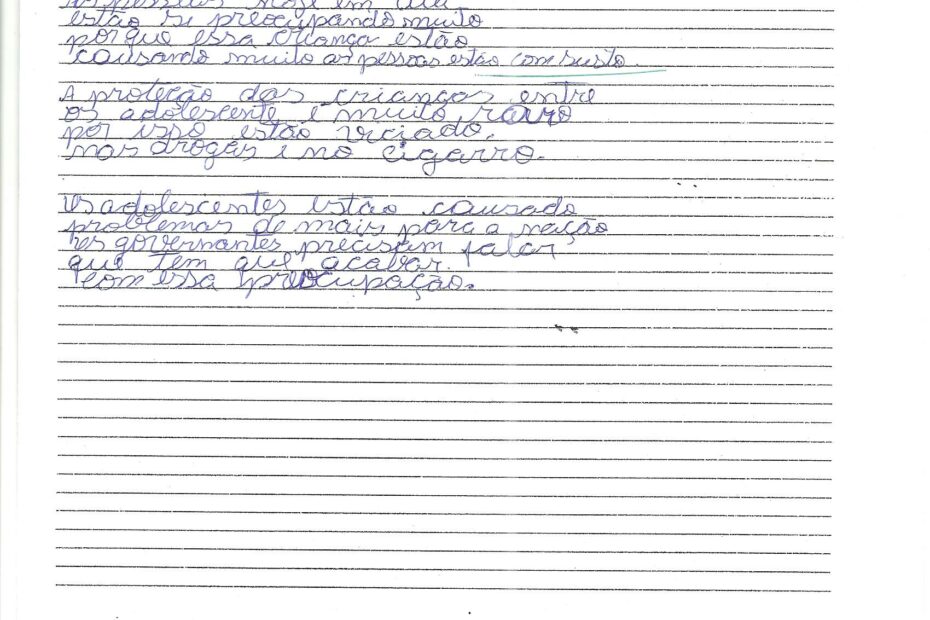 as pessoas hoje em dia
estão si preocupando muito
porque essa criança estão
causando muito as pessoas estão com susto.
A proteção das crianças entre
os adolescente é muito raro
por isso estão viciado,
nas drogas i no cigarro.
Os adolescentes estão causado
problemas de mais para a nação
os governantes precisam falar
que tem que acabar
com essa preocupação.